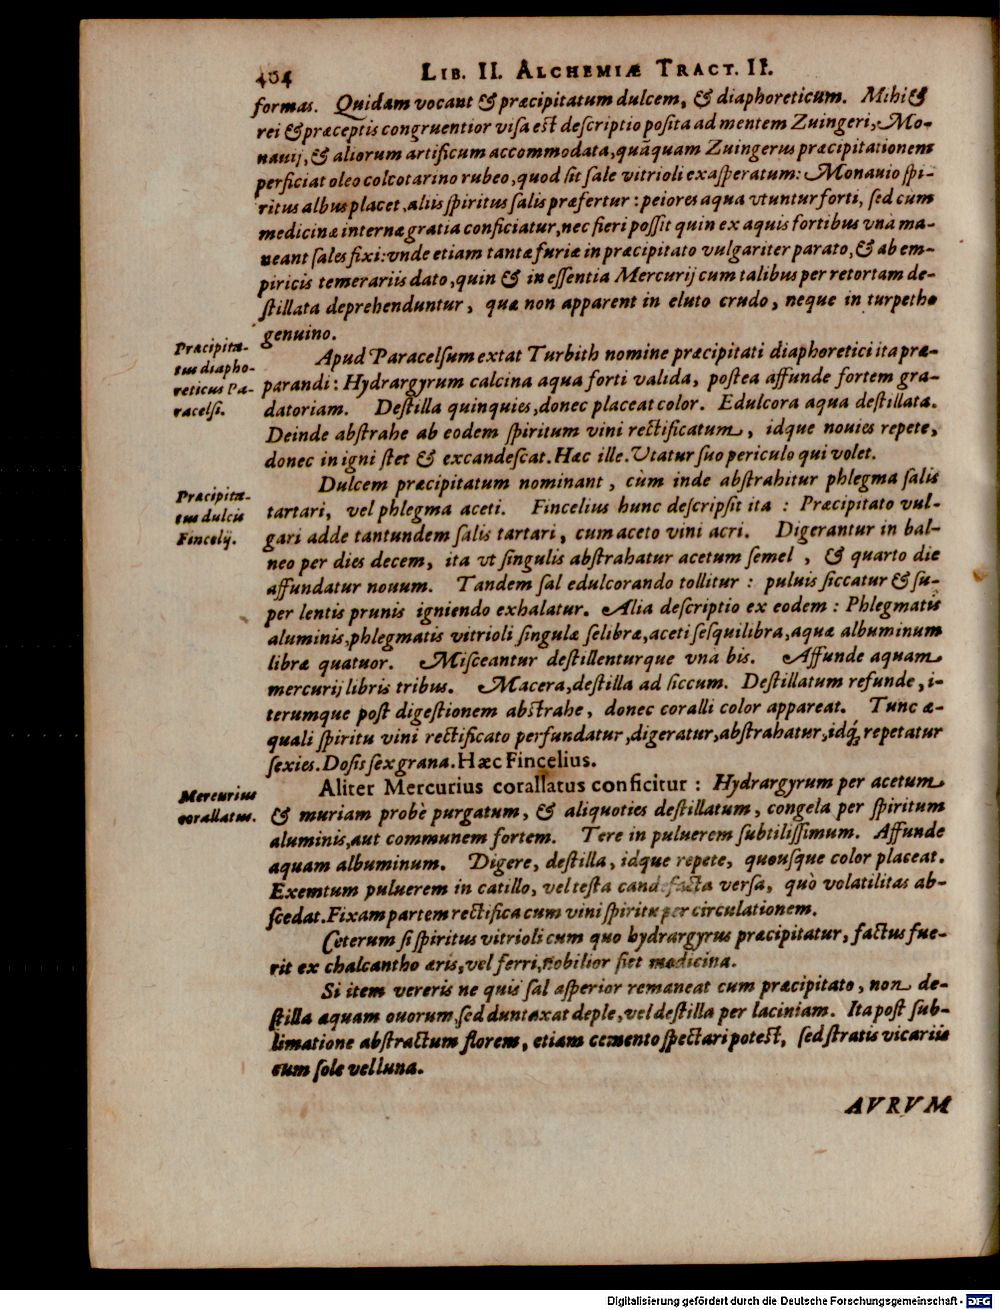 404 LIB. II. ALCHEMIÆ TRACT. II.
formas. Quidam vocant & præcipitatum dulcem, & diaphoreticum. Mihi &
rei & præceptis congruentior visa est descriptio posita ad mentem Zuingeri, Mo-
nauij, & aliorum artificum accommodata, quãquam Zuingerus præcipitationem
perficiat oleo colcotarino rubeo, quod sit sale vitrioli exasperatum: Monauio spi-
ritus albus placet, aliis spiritus salis præfertur: peiores aqua vtuntur forti, sed cùm
medicinæ internæ gratia conficiatur, nec fieri possit quin ex aquis fortibus vnà ma-
neant sales fixi: vnde etiam tantæ furiæ in præcipitato vulgariter parato, & ab em-
piricis temerariis dato, quin & in essentia Mercurij cum talibus per retortam de-
stillata deprehenduntur, quæ non apparent in eluto crudo, neque in turpetho
genuino.
Præcipita-
tus diapho-
reticus Pa-
racelsi.
Apud Paracelsum extat Turbith nomine præcipitati diaphoretici ita præ-
parandi: Hydrargyrum calcina aqua forti valida, postea affunde fortem gra-
datoriam. Destilla quinquies, donec placeat color. Edulcora aqua destillata.
Deinde abstrahe ab eodem spiritum vini rectificatum, idque nouies repete,
donec in igni stet & excandescat. Hæc ille. Vtatur suo periculo qui volet.
Præcipita-
tus dulcis
Fincelij.
Dulcem præcipitatum nominant, cùm inde abstrahitur phlegma salis
tartari, vel phlegma aceti. Fincelius hunc descripsit ita: Præcipitato vul-
gari adde tantundem salis tartari, cum aceto vini acri. Digerantur in bal-
neo per dies decem, ita vt singulis abstrahatur acetum semel, & quarto die
affundatur nouum. Tandem sal edulcorando tollitur: puluis siccatur & su-
per lentis prunis igniendo exhalatur. Alia descriptio ex eodem: Phlegmatis
aluminis, phlegmatis vitrioli singulæ selibræ, aceti sesquilibra, aquæ albuminum
libræ quatuor. Misceantur destillenturque vnà bis. Affunde aquam
mercurij libris tribus. Macera, destilla ad siccum. Destillatum refunde, i-
terumque post digestionem abstrahe, donec coralli color appareat. Tunc æ-
quali spiritu vini rectificato perfundatur, digeratur, abstrahatur, idq́; repetatur
sexies. Dosis sex grana. Hæc Fincelius.
Mercurius
corallatus.
Aliter Mercurius corallatus conficitur: Hydrargyrum per acetum
& muriam probè purgatum, & aliquoties destillatum, congela per spiritum
aluminis, aut communem fortem. Tere in puluerem subtilissimum. Affunde
aquam albuminum. Digere, destilla, idque repete, quousque color placeat.
Exemtum puluerem in catillo, vel testa candefacta versa, quò volatilitas ab-
scedat. Fixam partem rectifica cum vini spiritu per circulationem.
Ceterum si spiritus vitrioli cum quo hydrargyrus præcipitatur, factus fue-
rit ex chalcantho æris, vel ferri, nobilior fiet medicina.
Si item vereris ne quis sal asperior remaneat cum præcipitato, non de-
stilla aquam ouorum, sed duntaxat deple, vel destilla per laciniam. Ita post sub-
limatione abstractum florem, etiam cemento spectari potest, sed stratis vicariis
cum sole vel luna.
AVRVM
Digitalisierung gefördert durch die Deutsche Forschungsgemeinschaft - DFG